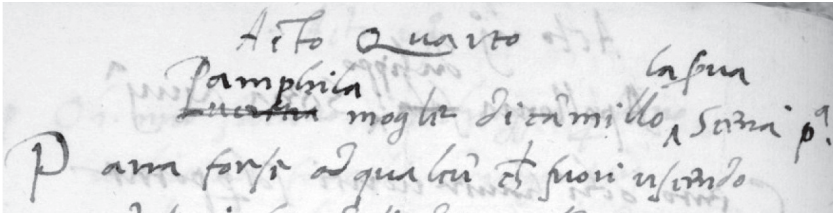 Acto Quarto
Pamphila la sua
Lucretia moglie di Camillo Scena pª
Parra forse ad qualcū ch fuori uscendo